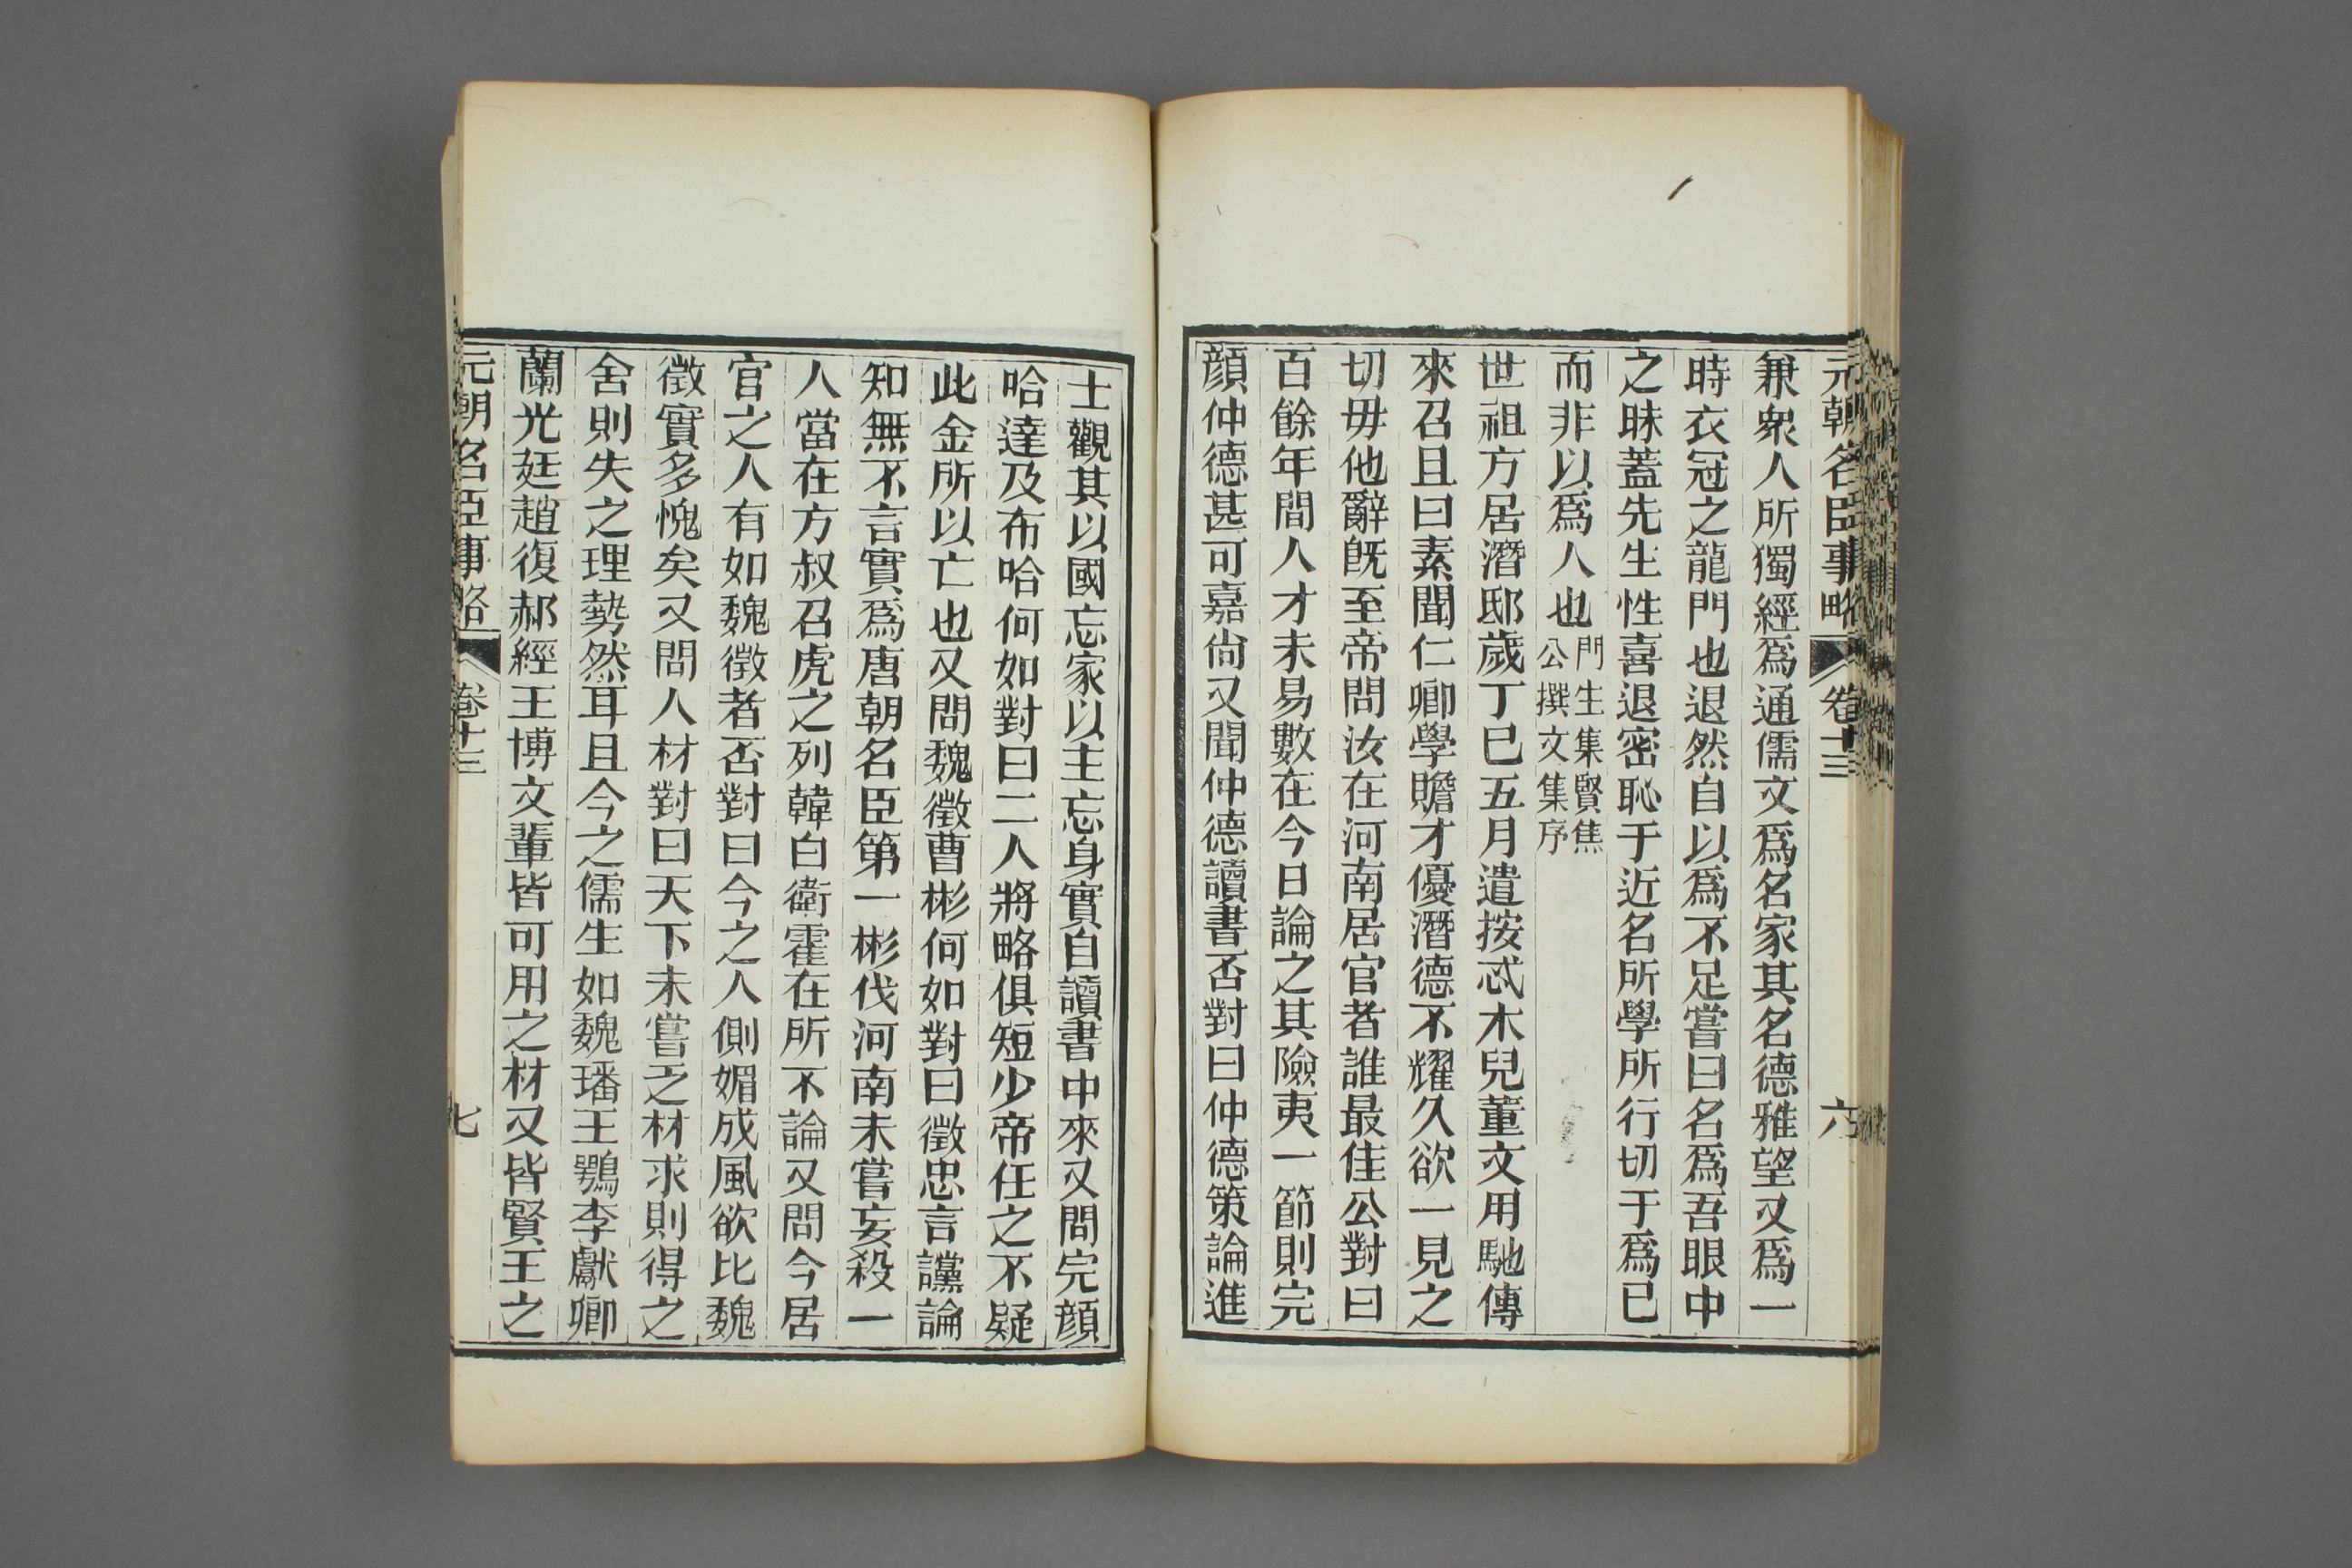 元朝名臣事略 卷十三 六
兼衆人所獨經爲通儒文爲名家其名德雅望又爲一
時衣冠之龍門也退然自以爲不足嘗曰名爲吾眼中
之昧蓋先生性喜退密恥于近名所學所行切于爲已
而非以爲人也門生集賢焦公撰文集序
世祖方居潛邸歲丁巳五月遣按忒木兒董文用馳傳
來召且曰素聞仁卿學贍才優潛德不耀久欲一見之
切毋他辭旣至帝問汝在河南居官者誰最佳公對曰
百餘年間人才未易數在今日論之其險夷一節則完
顔仲德甚可嘉尙又聞仲德讀書否對曰仲德策論進
士觀其以國忘家以主忘身實自讀書中來又問完顔
哈達及布哈何如對曰二人將略俱短少帝任之不疑
此金所以亡也又問魏徵曹彬何如對曰徵忠言讜論
知無不言實爲唐朝名臣第一彬伐河南未嘗妄殺一
人當在方叔召虎之列韓白衛霍在所不論又問今居
官之人有如魏徵者否對曰今之人側媚成風欲比魏
徵實多愧矣又問人材對曰天下未嘗乏材求則得之
舍則失之理勢然耳且今之儒生如魏璠王鶚李獻卿
蘭光廷趙復郝經王博文輩皆可用之材又皆賢王之
元朝名臣事略 卷十三 七